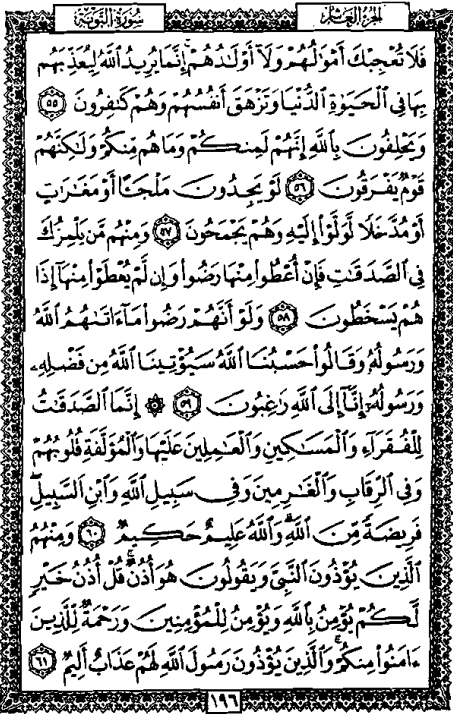 الجزء العاشر سورة التوبة
فَلَا تُعْجِبْكَ أَمْوَٰلُهُمْ وَلَآ أَوْلَـٰدُهُمْ ۚ إِنَّمَا يُرِيدُ ٱللَّهُ لِيُعَذِّبَهُم
بِهَا فِى ٱلْحَيَوٰةِ ٱلدُّنْيَا وَتَزْهَقَ أَنفُسُهُمْ وَهُمْ كَـٰفِرُونَ ٥٥
وَيَحْلِفُونَ بِٱللَّهِ إِنَّهُمْ لَمِنكُمْ وَمَا هُم مِّنكُمْ وَلَـٰكِنَّهُمْ
قَوْمٌ يَفْرَقُونَ ٥٦ لَوْ يَجِدُونَ مَلْجَـًٔا أَوْ مَغَـٰرَٰتٍ
أَوْ مُدَّخَلًا لَّوَلَّوْا۟ إِلَيْهِ وَهُمْ يَجْمَحُونَ ٥٧ وَمِنْهُم مَّن يَلْمِزُكَ
فِى ٱلصَّدَقَـٰتِ فَإِنْ أُعْطُوا۟ مِنْهَا رَضُوا۟ وَإِن لَّمْ يُعْطَوْا۟ مِنْهَآ إِذَا
هُمْ يَسْخَطُونَ ٥٨ وَلَوْ أَنَّهُمْ رَضُوا۟ مَآ ءَاتَىٰهُمُ ٱللَّهُ
وَرَسُولُهُۥ وَقَالُوا۟ حَسْبُنَا ٱللَّهُ سَيُؤْتِينَا ٱللَّهُ مِن فَضْلِهِۦ
وَرَسُولُهُۥٓ إِنَّآ إِلَى ٱللَّهِ رَٰغِبُونَ ٥٩ ۞ إِنَّمَا ٱلصَّدَقَـٰتُ
لِلْفُقَرَآءِ وَٱلْمَسَـٰكِينِ وَٱلْعَـٰمِلِينَ عَلَيْهَا وَٱلْمُؤَلَّفَةِ قُلُوبُهُمْ
وَفِى ٱلرِّقَابِ وَٱلْغَـٰرِمِينَ وَفِى سَبِيلِ ٱللَّهِ وَٱبْنِ ٱلسَّبِيلِ ۖ
فَرِيضَةً مِّنَ ٱللَّهِ ۗ وَٱللَّهُ عَلِيمٌ حَكِيمٌ ٦٠ وَمِنْهُمُ
ٱلَّذِينَ يُؤْذُونَ ٱلنَّبِىَّ وَيَقُولُونَ هُوَ أُذُنٌ ۚ قُلْ أُذُنُ خَيْرٍ
لَّكُمْ يُؤْمِنُ بِٱللَّهِ وَيُؤْمِنُ لِلْمُؤْمِنِينَ وَرَحْمَةٌ لِّلَّذِينَ
ءَامَنُوا۟ مِنكُمْ ۚ وَٱلَّذِينَ يُؤْذُونَ رَسُولَ ٱللَّهِ لَهُمْ عَذَابٌ أَلِيمٌ ٦١
١٩٦